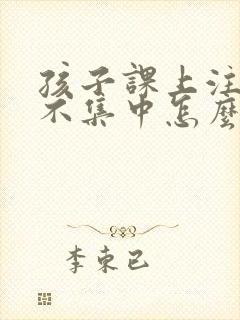 孩子課上注
不集中怎麼
李東已